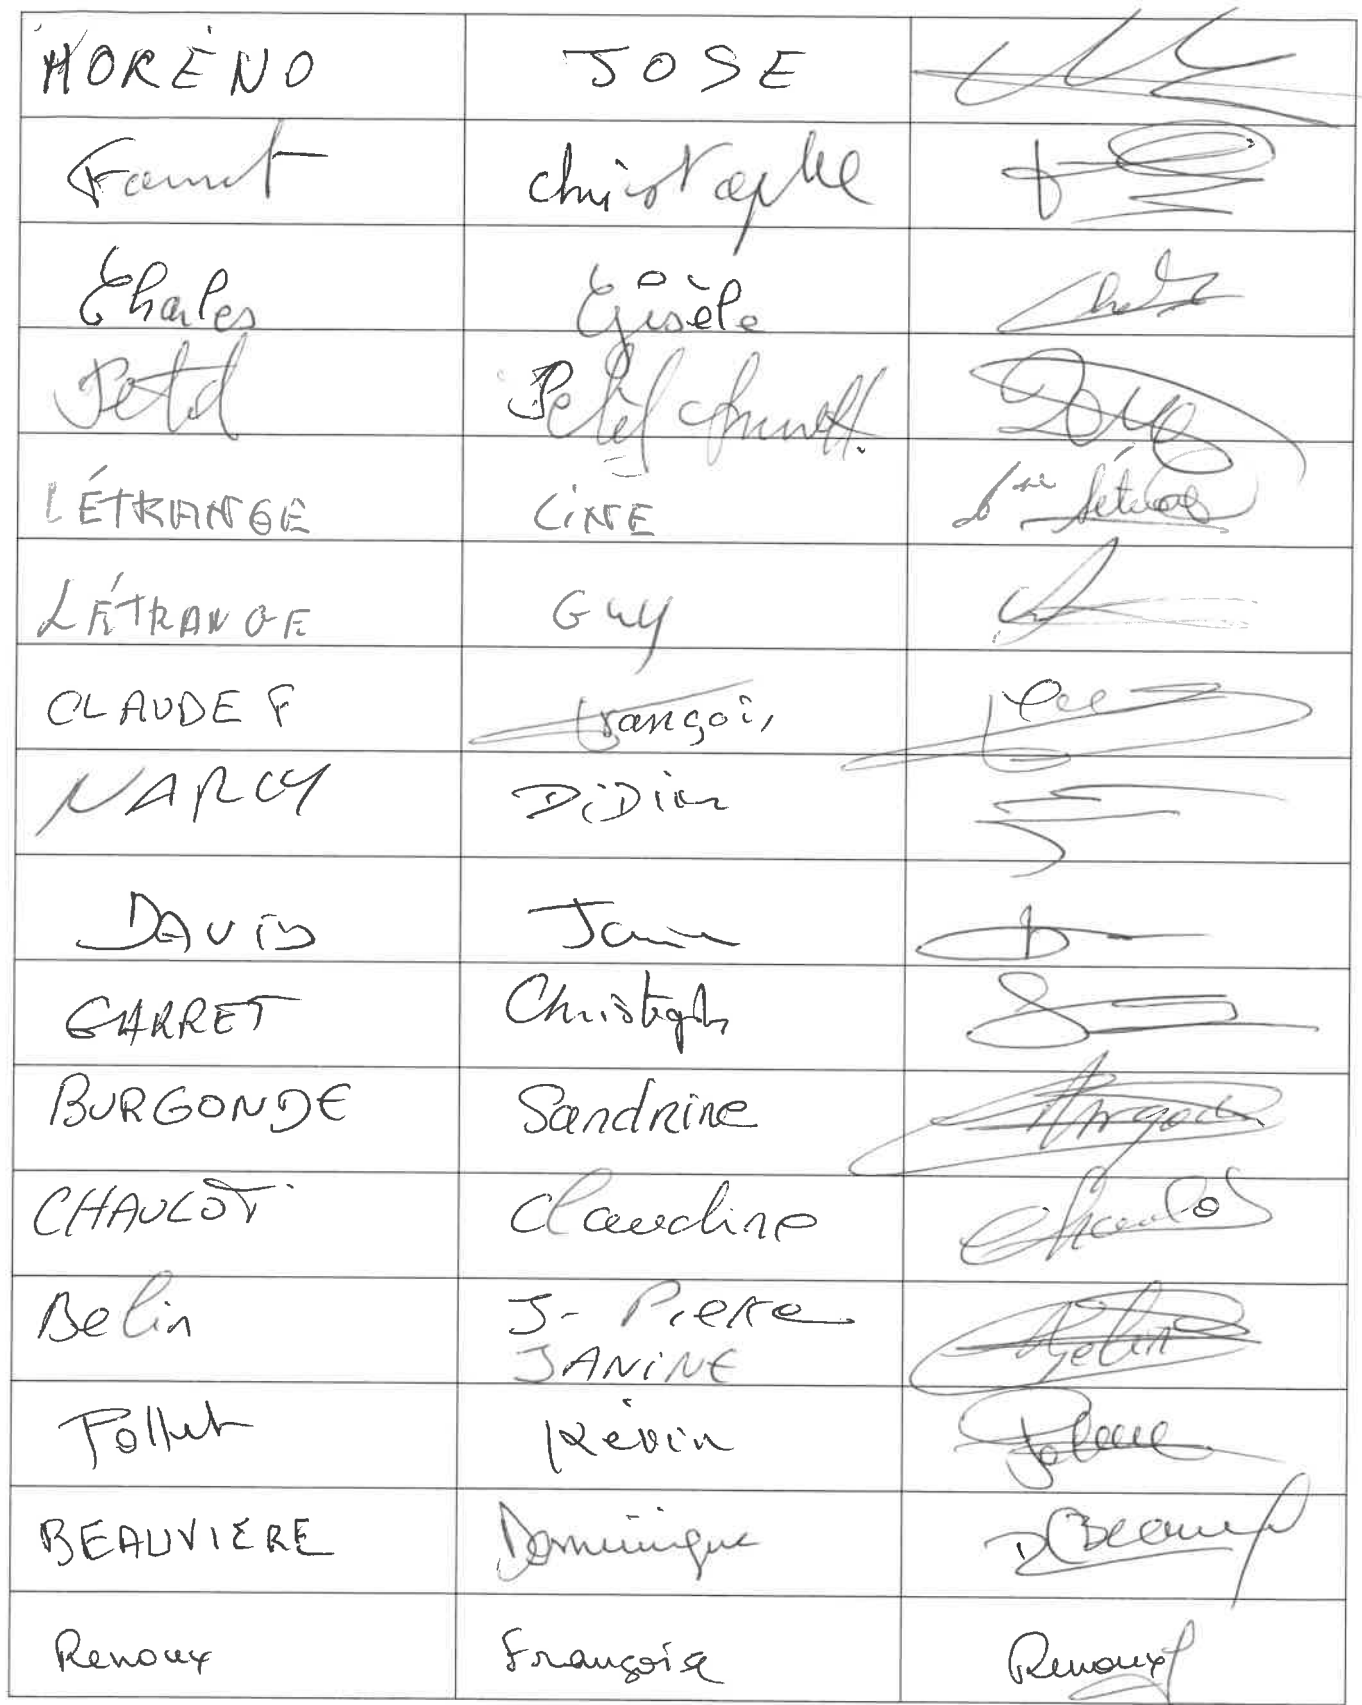 MORENO JOSE
Christophe
Charles Gisèle
Petit Petit
LÉTRANGE LINE
LÉTRANGE GUY
CLAUDE F François
NARCY DiDier
DAVID
GARRET Christophe
BURGONDE Sandrine Burgonde
CHAULOT Claudine Chaulot
Belin J- Pierre Belin
JANINE
Pollet Kévin
BEAUVIERE Dominique D Beauviere
Renoux Françoise Renoux